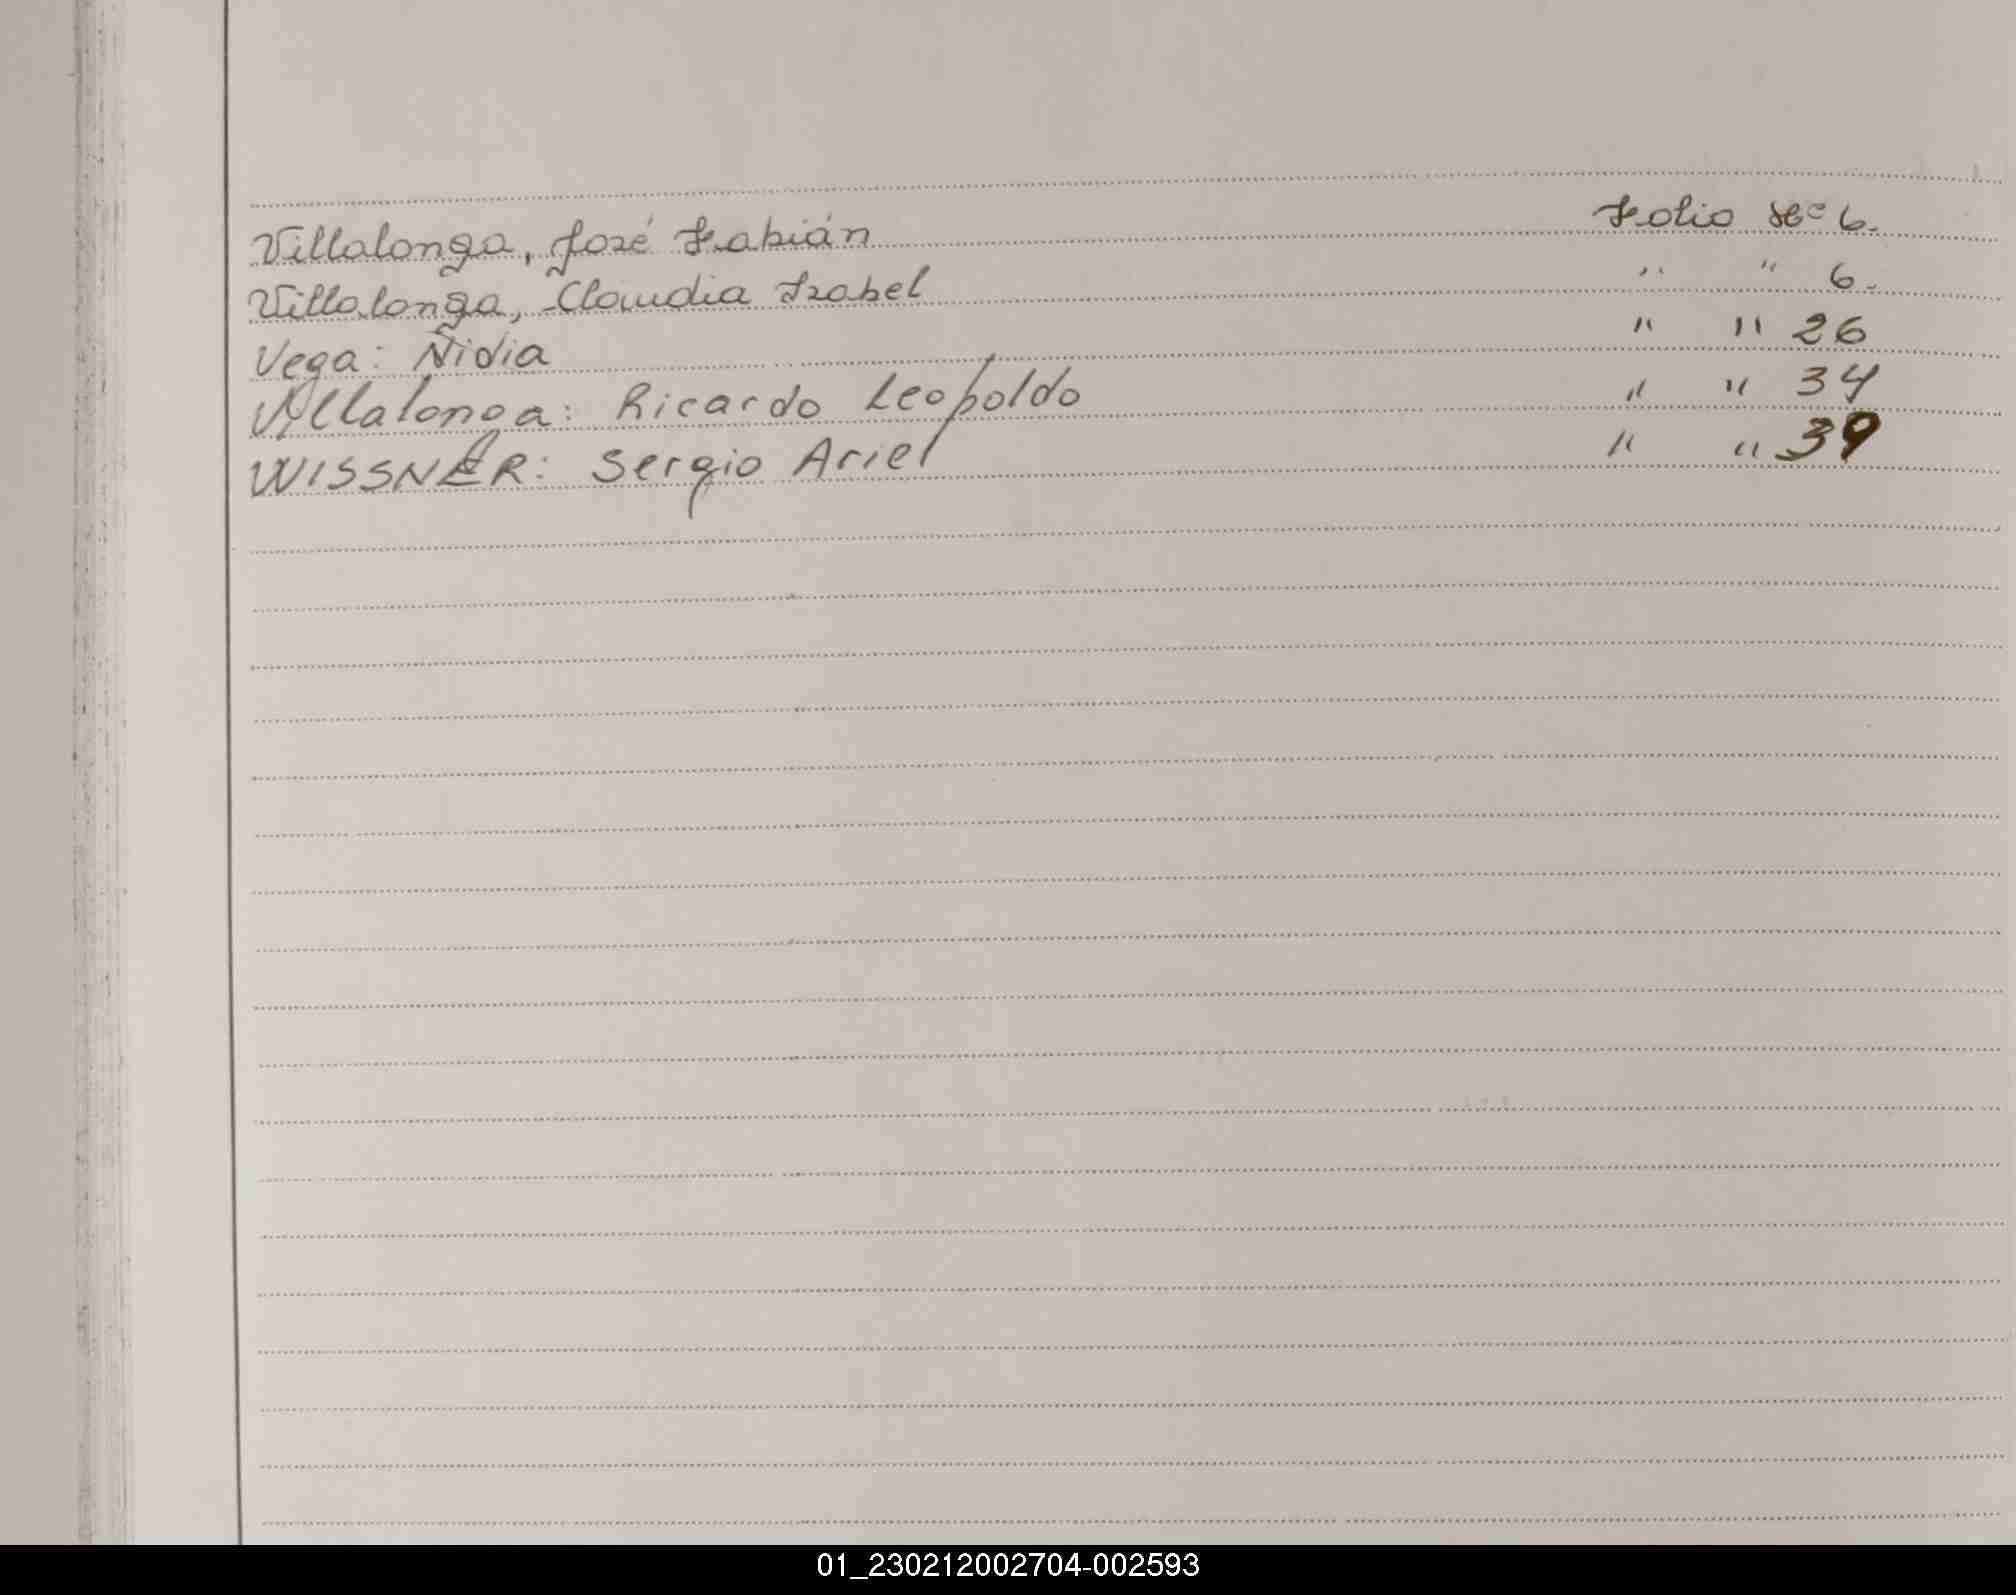 Villalonga, José Fabián Folio Nº 6.
Villalonga, Claudia Isabel " " 6.
Vega: Nidia " " 26
Villalonga: Ricardo Leopoldo " " 34
WISSNER: Sergio Ariel " " 39
01_230212002704-002593